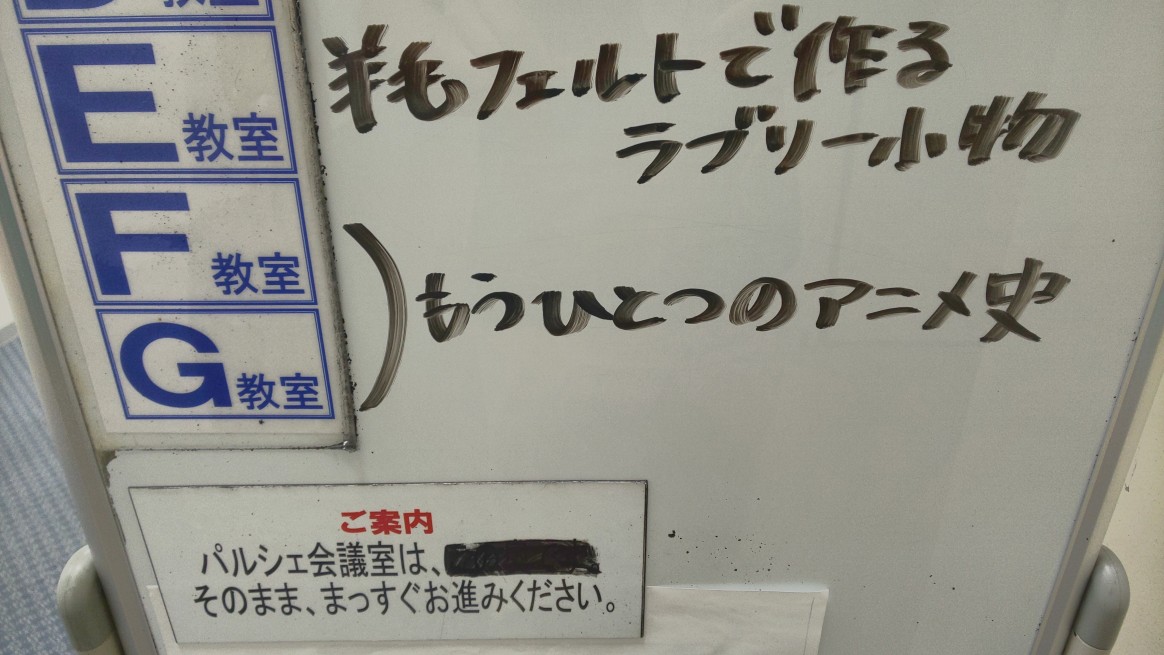 E教室
羊毛フェルトで作る
ラブリー小物
F教室
G教室
)もうひとつのアニメ史
ご案内
パルシェ会議室は、
そのまま、まっすぐお進みください。